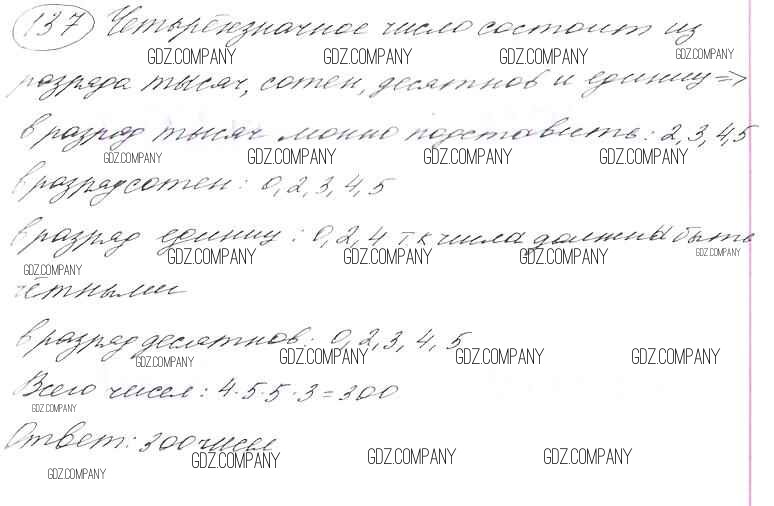 137 Четырёхзначное число состоит из
GDZ.COMPANY GDZ.COMPANY GDZ.COMPANY
разряда тысяч, сотен, десятков и единиц =>
в разряд тысяч можно подставить: 2,3,4,5
GDZ.COMPANY GDZ.COMPANY GDZ.COMPANY GDZ.COMPANY
в разряд сотен: 0,2,3,4,5
в разряд единиц: 0,2,4 т.к числа должны быть
GDZ.COMPANY GDZ.COMPANY GDZ.COMPANY GDZ.COMPANY GDZ.COMPANY
чётными
в разряд десятков: 0,2,3,4,5
GDZ.COMPANY GDZ.COMPANY GDZ.COMPANY GDZ.COMPANY
Всего чисел: 4·5·5·3=300
GDZ.COMPANY
Ответ: 300 чисел
GDZ.COMPANY GDZ.COMPANY GDZ.COMPANY GDZ.COMPANY